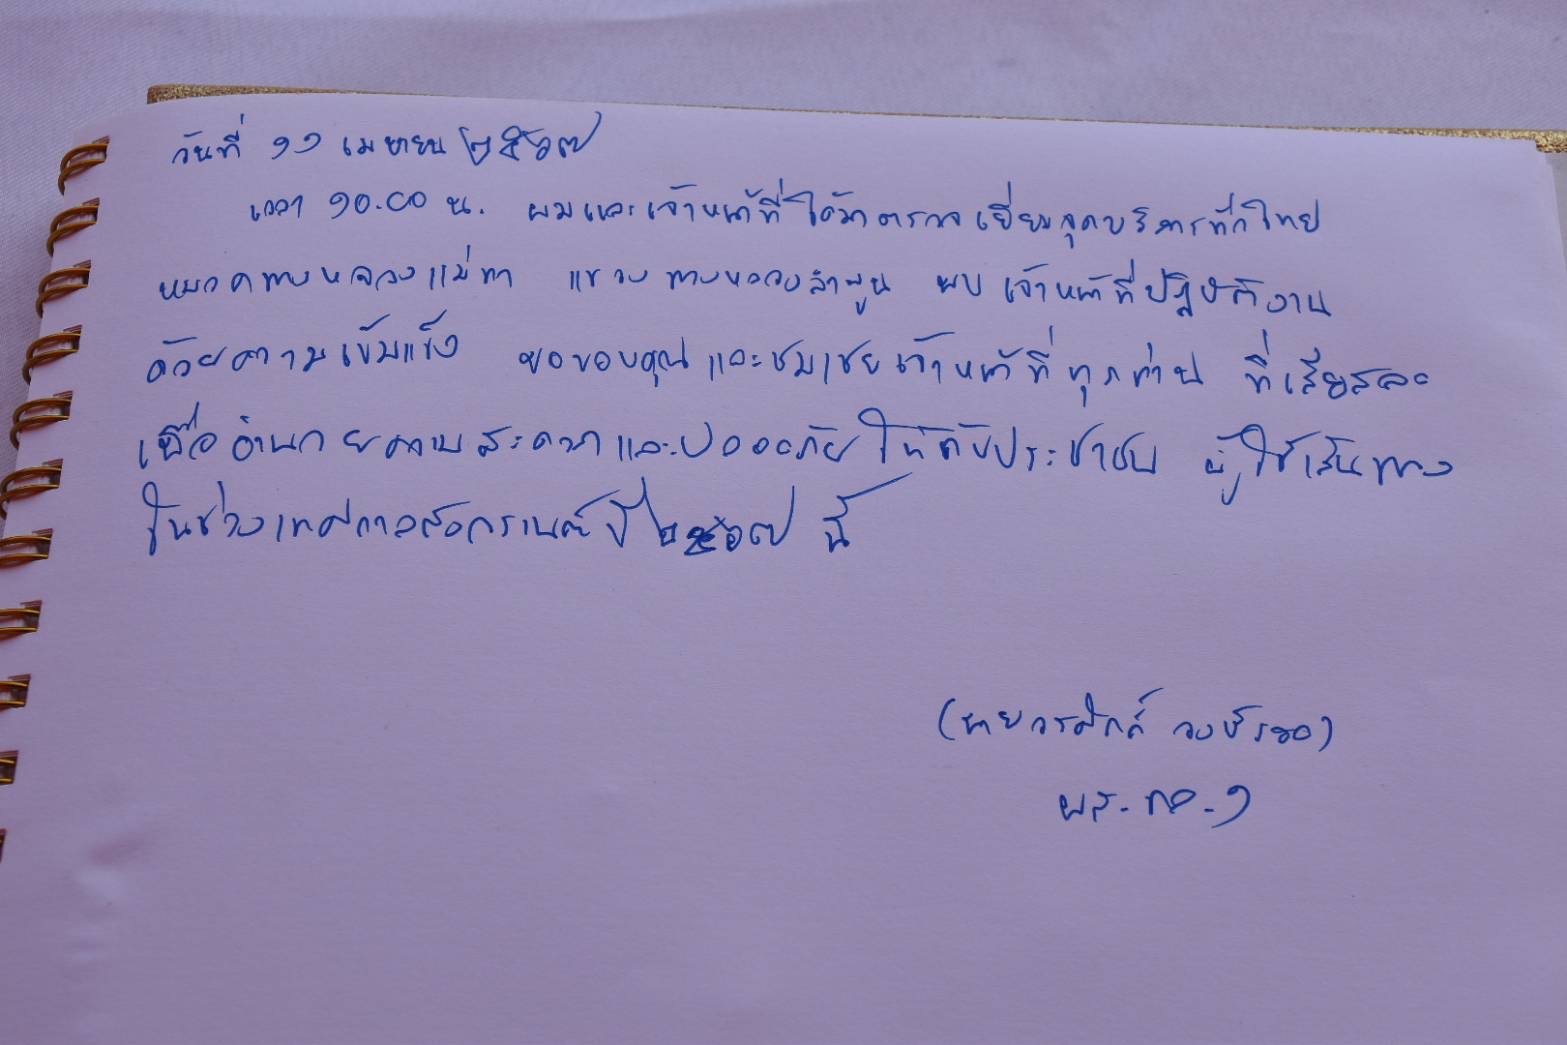 วันที่ ๑๑ เมษายน ๒๕๖๗
เวลา ๑๐.๐๐ น. ผมและเจ้าหน้าที่ ได้มาตรวจเยี่ยมจุดบริการทั่วไทย
หมวดทางหลวงแม่ทา แขวงทางหลวงลำพูน พบเจ้าหน้าที่ปฏิบัติงาน
ด้วยความเข้มแข็ง ขอขอบคุณและชมเชยเจ้าหน้าที่ทุกท่าน ที่เสียสละ
เพื่ออำนวยความสะดวกและปลอดภัยให้กับประชาชน ผู้ใช้เส้นทาง
ในช่วงเทศกาลสงกรานต์ปี ๒๕๖๗ นี้
(นายวรศักดิ์
ผส.ทล.๑